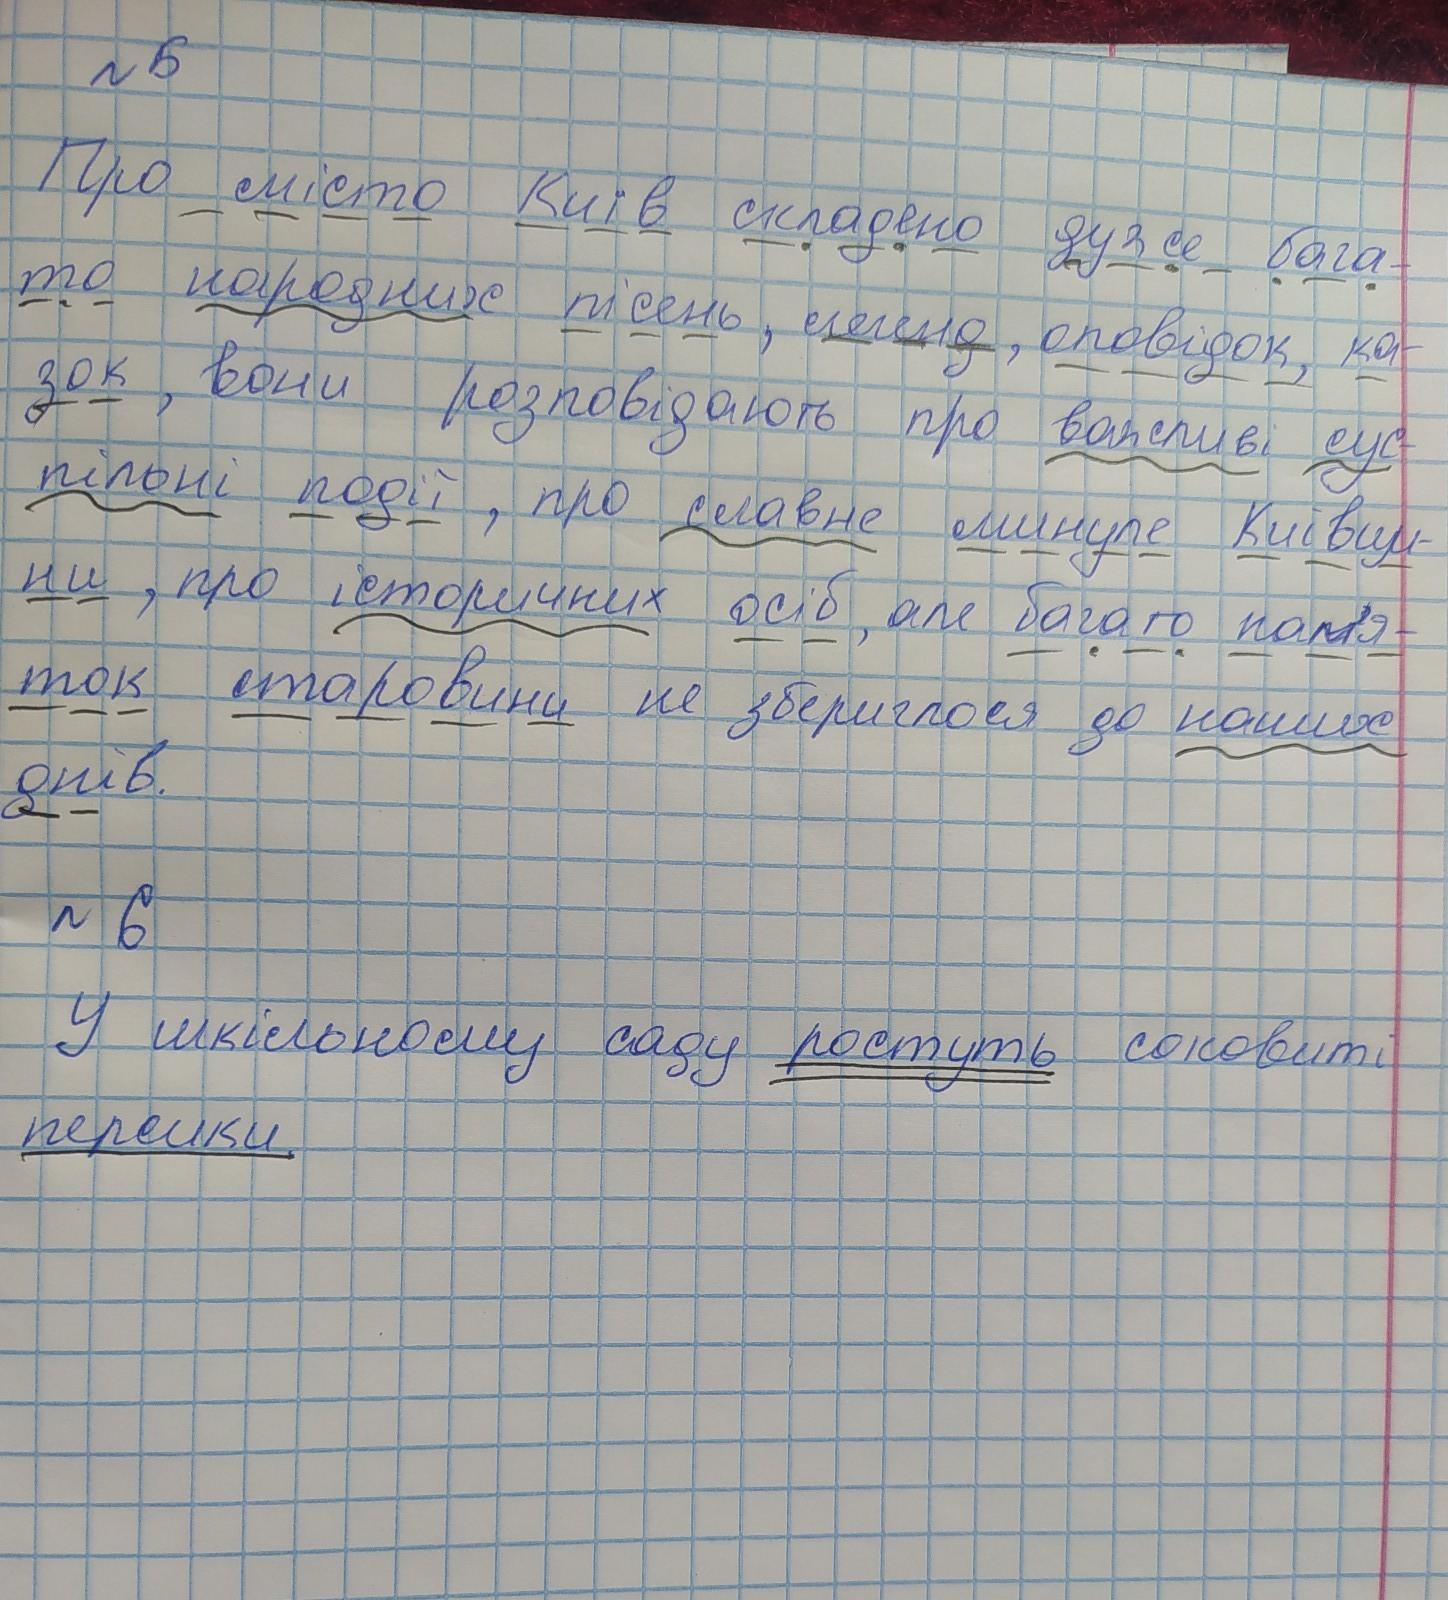 №6
Про місто Київ складено дуже бага-
то народних пісень, легенд, оповідок, ка-
зок, вони розповідають про важливі сус-
пільні події, про славне минуле Київщи-
ни, про історичних осіб, але багато пам'я-
ток старовини не збериглося до наших
днів.
№6
У шкільному саду ростуть соковиті
персики.